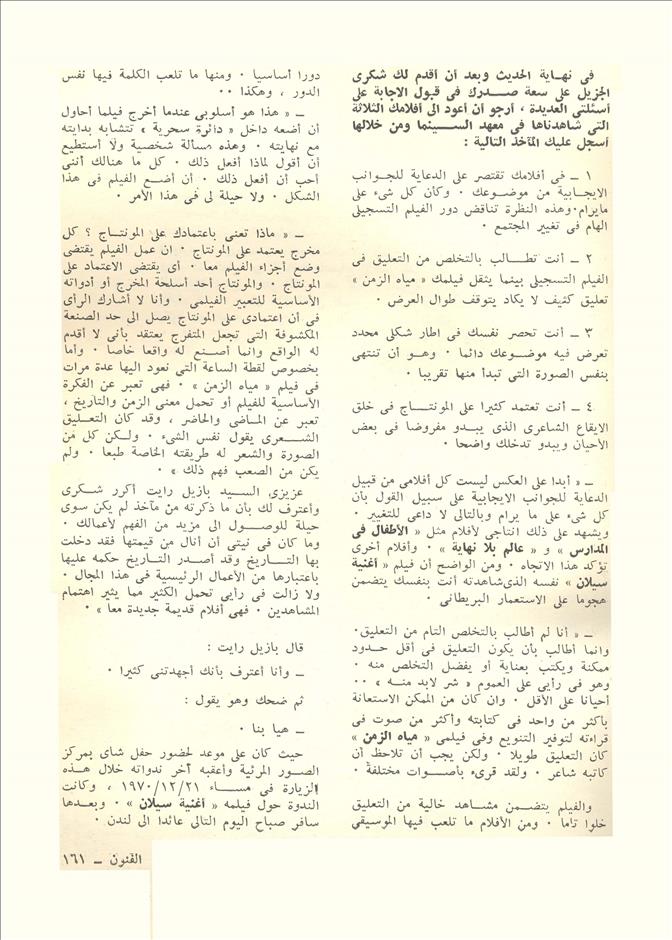 فى نهـاية الحديث وبعد أن أقدم لك شكرى
الجزيل على سعة صـدرك فى قبول الاجابة على
أسئلتى العديدة ، أرجو أن أعود الى أفلامك الثلاثة
التى شاهدناها فى معهد الســينما ومن خلالها
أسجل عليك المآخذ التالية :
١ ـ فى أفلامك تقتصر على الدعاية للجـوانب
الايجـابية من موضـوعك ٠ وكأن كل شىء على
مايرام.وهذه النظرة تناقض دور الفيلم التسجيلى
الهام فى تغيير المجتمع ٠
٢ ـ أنت تطــالب بالتخلص من التعليق فى
الفيلم التسجيلى بينما يثقل فيلمك « مياه الزمن »
تعليق كثيف لا يكاد يتوقف طوال العرض ٠
٣ ـ أنت تحصر نفسك فى اطار شكلى محدد
تعرض فيه موضـوعك دائما ٠ وهـو أن تنتهى
بنفس الصورة التى تبدأ منها تقريبا ٠
٤ ـ أنت تعتمد كثيرا على المونتــاج فى خلق
الايقاع الشاعرى الذى يبـدو مفروضا فى بعض
الأحيان ويبدو تدخلك واضحا ٠
ـ « أبدا على العكس ليست كل أفلامى من قبيل
الدعاية للجوانب الايجابية على سبيل القول بأن
كل شىء على ما يرام وبالتالى لا داعى للتغيير ٠
ويشهد على ذلك انتاجى لأفلام مثل « الأطفال فى
المدارس » و « عالم بلا نهاية » ٠ وأفلام أخرى
تؤكد هذا الاتجاه ٠ ومن الواضح أن فيلم « أغنية
سيلان » نفسه الذىشاهدته أنت بنفسك يتضمن
هجوما على الاستعمار البريطانى ٠
ـ « أنا لم أطالب بالتخلص التام من التعليق.
وانما أطالب بأن يكون التعليق فى أقل حـدود
ممكنة ويكتب بعناية أو يفضل التخلص منه ٠
وهو فى رأيى على العموم « شر لابد منـه » ٠٠
أحيانا على الأقل ٠ وان كان من الممكن الاستعانة
بأكثر من واحد فى كتابته وأكثر من صوت فى
قراءته لتوفير التنويع وفى فيلمى « مياه الزمن »
كان التعليق طويلا ٠ ولكن يجب أن تلاحظ أن
كاتبه شاعر ٠ ولقد قرىء بأصـوات مختلفة ٠
والفيلم يتضـمن مشـاهد خالية من التعليق
خلوا تاما ٠ ومن الأفلام ما تلعب فيها الموسيقى
دورا أساسيا ٠ ومنها ما تلعب الكلمة فيها نفس
الدور ، وهكذا ٠٠
ـ « هذا هو أسلوبى عندما أخرج فيلما أحاول
أن أضعه داخل « دائرة سحرية » تتشابه بدايته
مع نهايته ٠ وهذه مسألة شخصية ولا أستطيع
أن أقول لماذا أفعل ذلك ٠ كل ما هنالك أننى
أحب أن أفعل ذلك ٠ أن أضـع الفيلم فى هذا
الشكل ٠ ولا حيلة لى فى هذا الأمر ٠
ـ « ماذا تعنى باعتمادك على المونتــاج ؟ كل
مخرج يعتمد على المونتاج ٠ ان عمل الفيلم يقتضى
وضع أجزاء الفيلم معا ٠ أى يقتضى الاعتماد على
المونتاج ٠ والمونتاج أحد أسلحة المخرج أو أدواته
الأساسية للتعبير الفيلمى ٠ وأنا لا أشارك الرأى
فى أن اعتمادى على المونتاج يصل الى حد الصنعة
المكشوفة التى تجعل المتفرج يعتقد بأنى لا أقدم
له الواقع وانما أصـنع له واقعا خاصا ٠ وأما
بخصوص لقطة الساعة التى نعود اليها عدة مرات
فى فيلم « مياه الزمن » ٠ فهى تعبر عن الفكرة
الأساسية للفيلم أو تحمل معنى الزمن والتاريخ ،
تعبر عن المـاضى والحاضر ، وقد كان التعـليق
الشــعرى يقول نفس الشىء ٠ ولـكن كل من
الصورة والشعر له طريقته الخاصة طبعا ٠ ولم
يكن من الصعب فهم ذلك » ٠
عزيزى السـيد بازيل رايت أكرر شـكرى
وأعترف لك بأن ما ذكرته من مآخذ لم يكن سوى
حيلة للوصـول الى مزيد من الفهم لأعمالك ٠
وما كان فى نيتى أن أنال من قيمتها فقد دخلت
بها التــاريخ وقد أصـدر التـاريخ حكمه عليها
باعتبارها من الأعمال الرئيسية فى هذا المجال ٠
ولا زالت فى رأيى تحمل الكثير مما يثير اهتمام
المشاهدين ٠ فهى أفلام قديمة جديدة معا » ٠
قال بازيل رايت :
ـ وأنا أعترف بأنك أجهدتنى كثيرا ٠
ثم ضحك وهو يقول :
ـ هيا بنا ٠
حيث كان على موعد لحضور حفل شاى بمركز
الصـور المرئية وأعقبه آخر ندواته خلال هـذه
الزيارة فى مسـاء ١٩٧٠/١٢/٢١ ، وكانت
الندوة حول فيلمه « أغنية سيلان » ٠ وبعـدها
سافر صباح اليوم التالى عائدا الى لندن ٠
الفنون ـ ١٦١